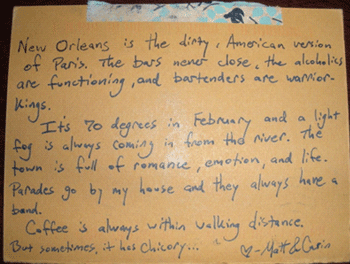 New Orleans is the dirty, American version
of Paris. The bars never close, the alcoholics
are functioning, and bartenders are warrior-
Kings.
It's 70 degrees in February and a light
fog is always coming in from the river. The
town is full of romance, emotion, and life.
Parades go by my house and they always have a
band.
Coffee is always within walking distance.
But sometimes, it has Chicory... ♡-Matt &